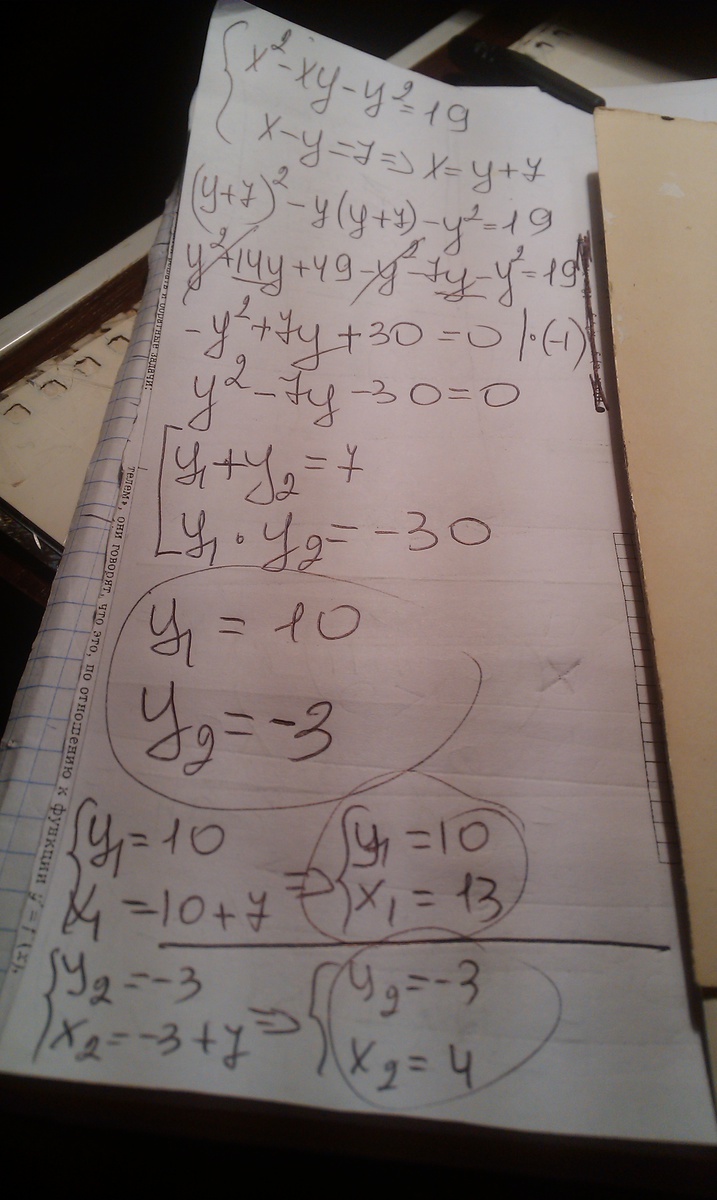 { x² - xy - y² = 19
x - y = 7 => x = y + 7
(y+7)² - y(y+7) - y² = 19
y² + 14y + 49 - y² - 7y - y² = 19
-y² + 7y + 30 = 0 | · (-1)
y² - 7y - 30 = 0
[ y₁ + y₂ = 7
y₁ · y₂ = -30
y₁ = 10
y₂ = -3
{ y₁ = 10
x₁ = 10 + 7 => { y₁ = 10
x₁ = 13
{ y₂ = -3
x₂ = -3 + 7 => { y₂ = -3
x₂ = 4
и обратные задачи:
телем», они говорят, что это, по отношению к функции y = f (x),